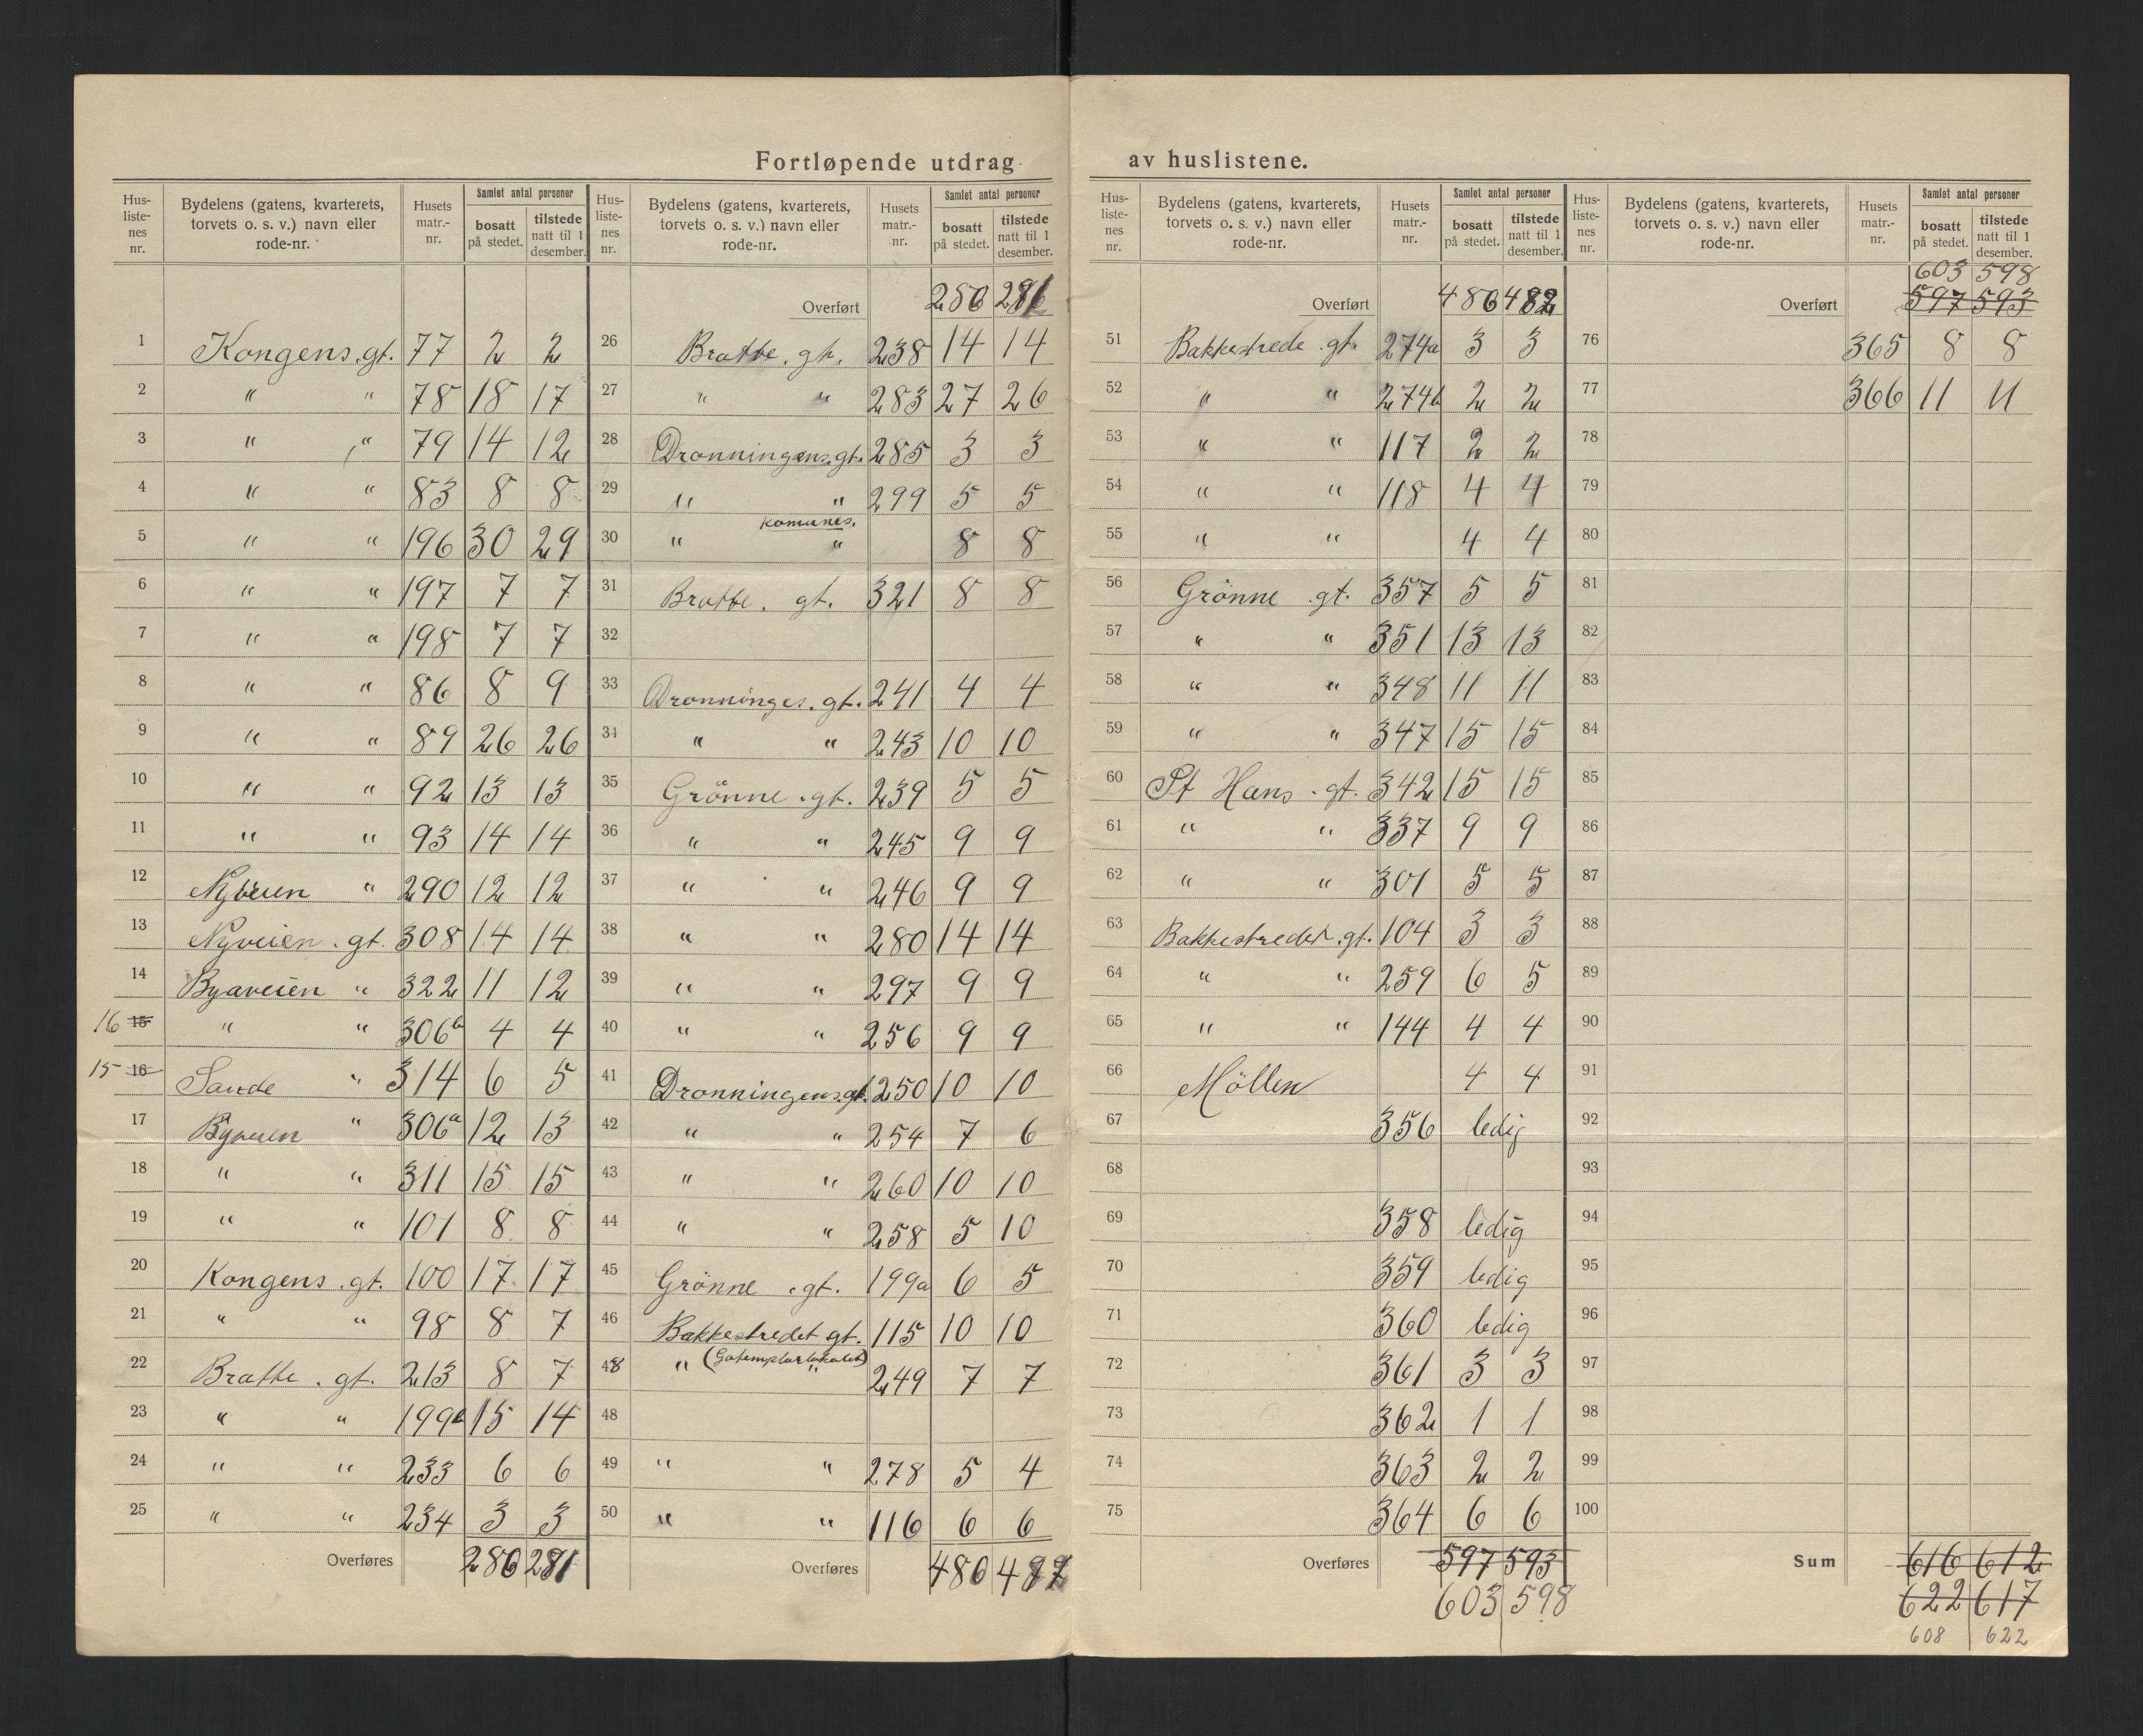 Fortløpende utdrag av huslistene.
Hus-listenes nr. | Bydelens (gatens, kvarterets, torvets o. s. v.) navn eller rode-nr. | Husets matr.-nr. | Samlet antal personer bosatt på stedet. | tilstede natt til 1 desember.
1 Kongens gt. 77 2 2
2 " " 78 18 17
3 " " 79 14 12
4 " " 83 8 8
5 " " 196 30 29
6 " " 197 7 7
7 " " 198 7 7
8 " " 86 8 9
9 " " 89 26 26
10 " " 92 13 13
11 " " 93 14 14
12 Nyveien " 290 12 12
13 Nyveien . gt. 308 14 14
14 Byaveien " 322 11 12
16 15 " " 306b 4 4
15 16 Sande " 314 6 5
17 Byveien " 306a 12 13
18 " " 311 15 15
19 " " 101 8 8
20 Kongens . gt. 100 17 17
21 " " 98 8 7
22 Bratte . gt. 213 8 7
23 " " 199b 15 14
24 " " 233 6 6
25 " " 234 3 3
Overføres 286 281
Hus-listenes nr. | Bydelens (gatens, kvarterets, torvets o. s. v.) navn eller rode-nr. | Husets matr.-nr. | Samlet antal personer bosatt på stedet. | tilstede natt til 1 desember.
Overført 286 281
26 Bratte . gt. 238 14 14
27 " " 283 27 26
28 Dronningens. gt. 285 3 3
29 " " 299 5 5
komunes.
30 " " 8 8
31 Bratte . gt. 321 8 8
32
33 Dronninges. gt. 241 4 4
34 " " 243 10 10
35 Grönne . gt. 239 5 5
36 " " 245 9 9
37 " " 246 9 9
38 " " 280 14 14
39 " " 297 9 9
40 " " 256 9 9
41 Dronningens. gt. 250 10 10
42 " " 254 7 6
43 " " 260 10 10
44 " " 258 5 10
45 Grönne . gt. 199a 6 5
46 Bakkestredet gt. 115 10 10
48 " (Gotemplarlokalet) " 249 7 7
48
49 " " 278 5 4
50 " " 116 6 6
Overføres 486 487
Hus-listenes nr. | Bydelens (gatens, kvarterets, torvets o. s. v.) navn eller rode-nr. | Husets matr.-nr. | Samlet antal personer bosatt på stedet. | tilstede natt til 1 desember.
Overført 486 482
51 Bakkestrede . gt. 274a 3 3
52 " " 274b 2 2
53 " " 117 2 2
54 " " 118 4 4
55 " " 4 4
56 Grönne gt. 357 5 5
57 " " 351 13 13
58 " " 348 11 11
59 " " 347 15 15
60 St Hans . gt. 342 15 15
61 " " 337 9 9
62 " " 301 5 5
63 Bakkestredet . gt. 104 3 3
64 " " 259 6 5
65 " " 144 4 4
66 Möllen 4 4
67 356 ledig
68
69 358 ledig
70 359 ledig
71 360 ledig
72 361 3 3
73 362 1 1
74 363 2 2
75 364 6 6
Overføres 597 593
603 598
Hus-listenes nr. | Bydelens (gatens, kvarterets, torvets o. s. v.) navn eller rode-nr. | Husets matr.-nr. | Samlet antal personer bosatt på stedet. | tilstede natt til 1 desember.
603 598
Overført 597 593
76 365 8 8
77 366 11 11
78
79
80
81
82
83
84
85
86
87
88
89
90
91
92
93
94
95
96
97
98
99
100
Sum 616 612
622 617
608 622